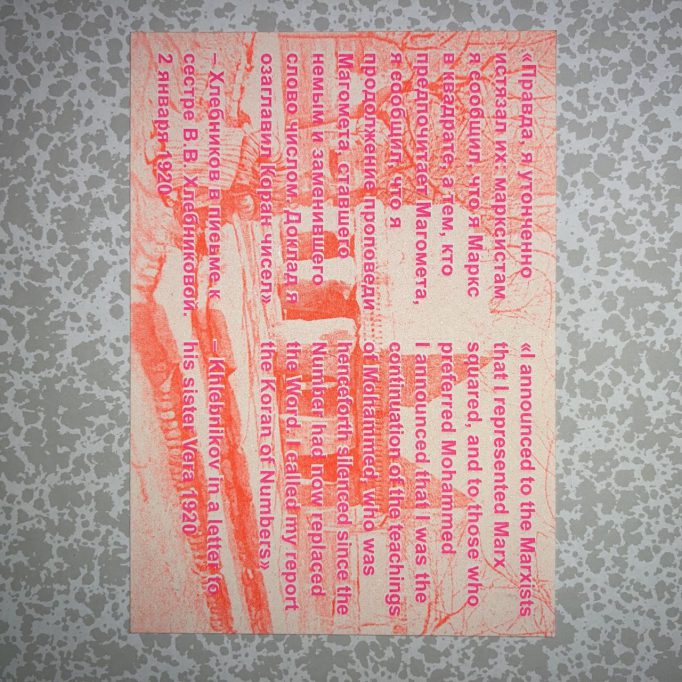 «Правда, я утонченно
истязал их: марксистам
я сообщил, что я Маркс
в квадрате, а тем, кто
предпочитает Магомета,
я сообщил, что я
продолжение проповеди
Магомета, ставшего
немым и заменившего
слово числом. Доклад я
озаглавил Коран чисел»
– Хлебников в письме к
сестре В.В. Хлебниковой.
2 января 1920
«I announced to the Marxists
that I represented Marx
squared, and to those who
preferred Mohammed
I announced that I was the
continuation of the teachings
of Mohammed, who was
henceforth silenced since the
Number had now replaced
the Word. I called my report
the Koran of Numbers»
– Khlebnikov in a letter to
his sister Vera 1920